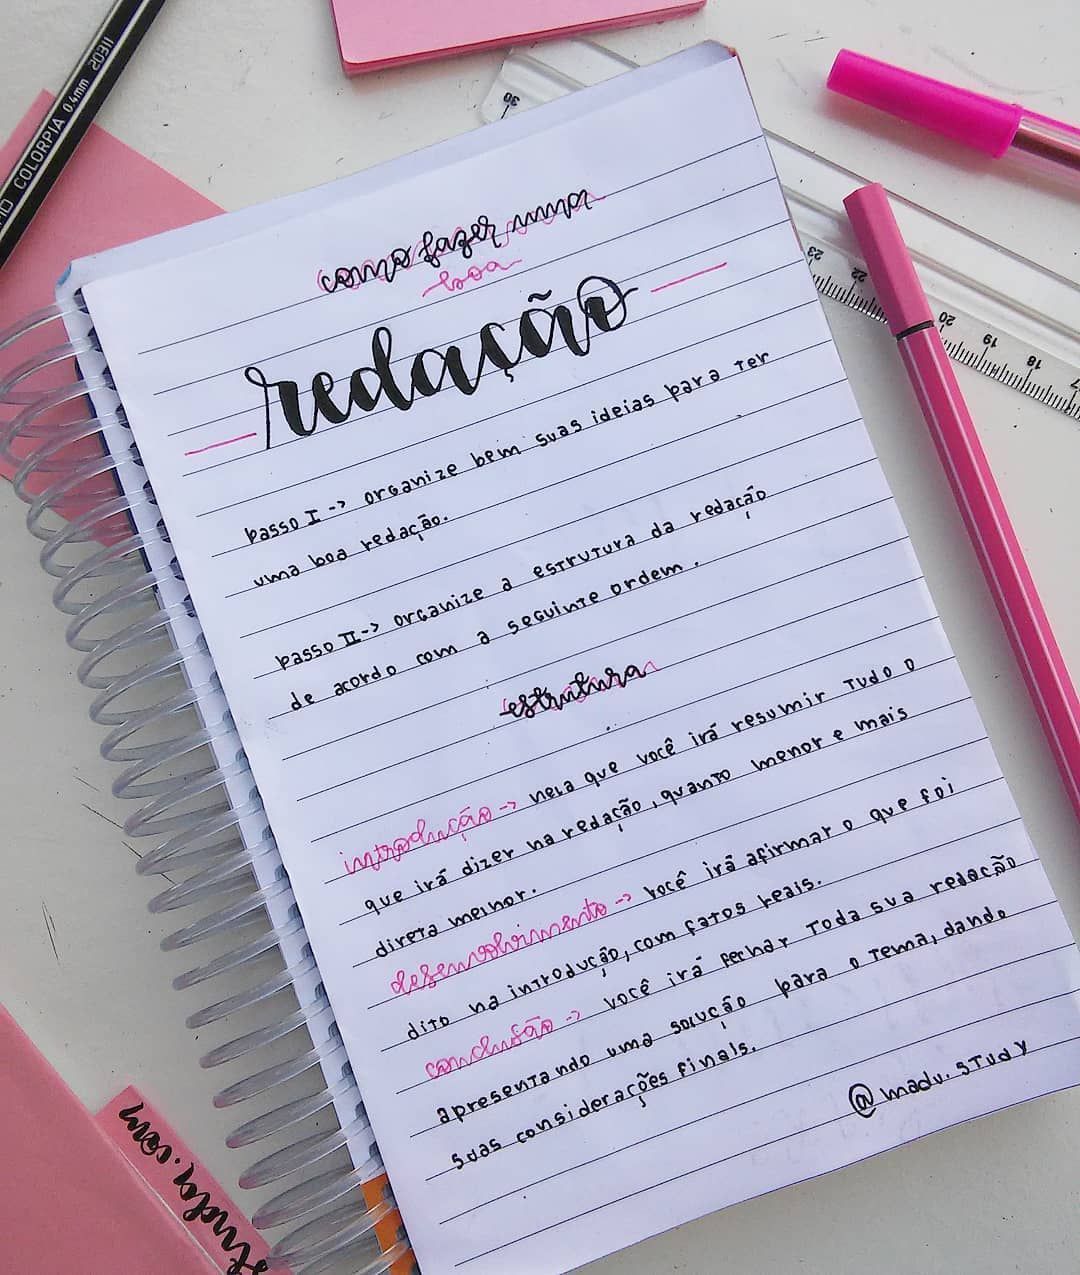 como fazer uma
boa
redação
passo I -> organize bem suas ideias para ter
uma boa redação.
passo II -> organize a estrutura da redação
de acordo com a seguinte ordem.
estrutura
introdução -> nela que você irá resumir tudo o
que irá dizer na redação, quanto menor e mais
direta melhor.
desenvolvimento -> você irá afirmar o que foi
dito na introdução, com fatos reais.
conclusão -> você irá fechar toda sua redação
apresentando uma solução para o tema, dando
suas considerações finais.
@madu.study
COLORPIA 0.4mm 20311
30
23
22
20
19
18
17